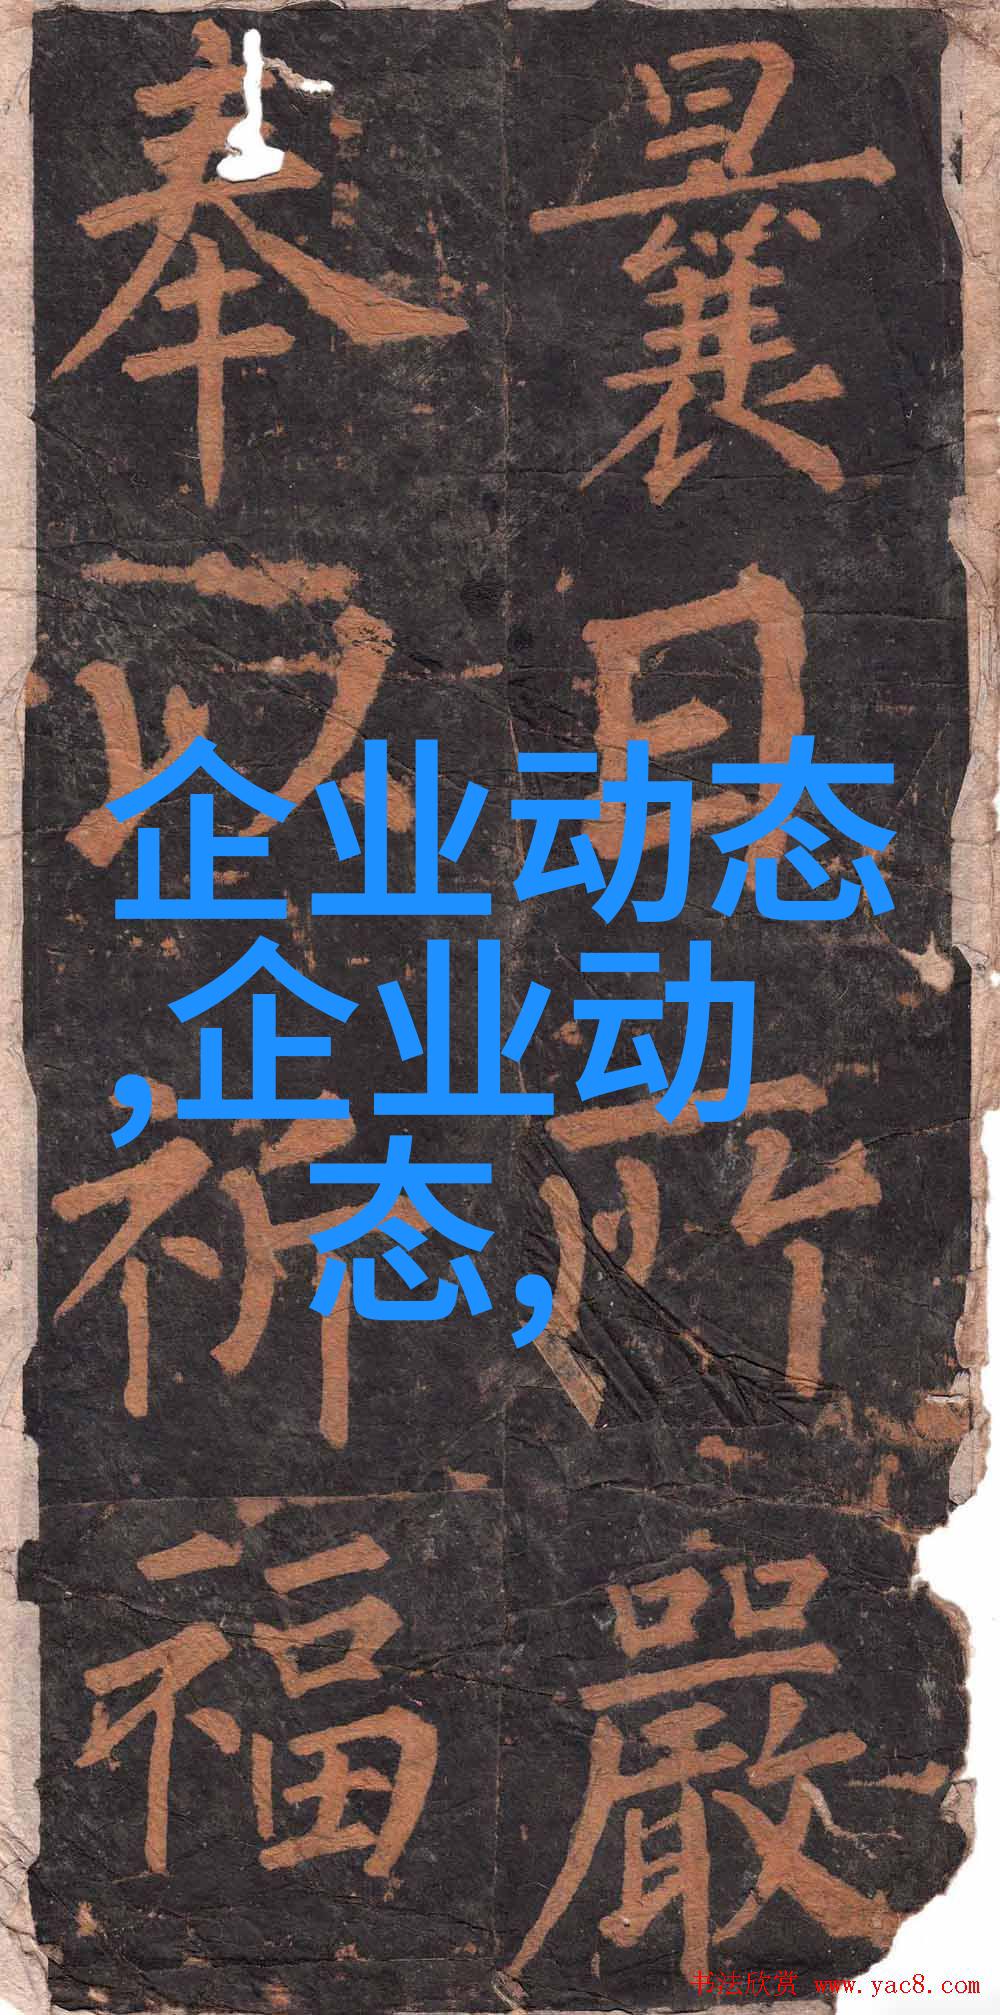 曩日所嚴
奉以祈福
企业动态
,企业动
态,
书法欣赏 www.yac8.com